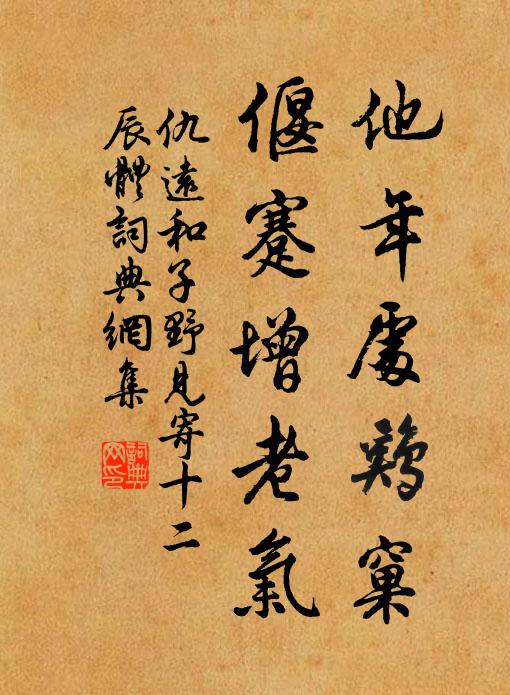 他年處鷄窠
偃蹇增老氣
仇遠和子野見寄十二
辰體詞典網集
詞典
网印